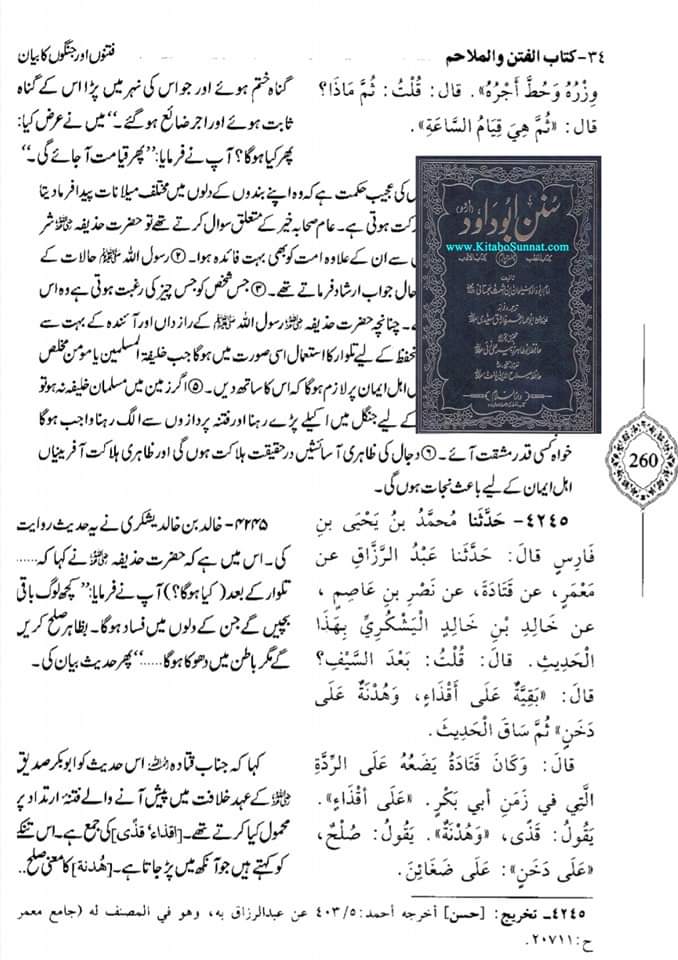 ٣٤- كتاب الفتن والملاحم
فتنوں اور جنگوں کا بیان
وِزْرُهُ وَحُطَّ أَجْرُهُ». قال: قُلْتُ: ثُمَّ مَاذَا؟
قال: «ثُمَّ هِيَ قِيَامُ السَّاعَةِ».
گناہ ختم ہوئے اور جو اس کی نہر میں پڑا اس کے گناہ
ثابت ہوئے اور اجر ضائع ہو گئے۔“ میں نے عرض کیا:
پھر کیا ہوگا؟ آپ نے فرمایا: ”پھر قیامت آ جائے گی۔“
کی عجیب حکمت ہے کہ وہ اپنے بندوں کے دلوں میں مختلف میلانات پیدا فرما دیتا
کت ہوتی ہے۔ عام صحابہ خیر کے متعلق سوال کرتے تھے تو حضرت حذیفہ ﷜ شر
سے ان کے علاوہ امت کو بھی بہت فائدہ ہوا۔ ② رسول اللہ ﷺ حالات کے
حال جواب ارشاد فرماتے تھے۔ ③ جس شخص کو جس چیز کی رغبت ہوتی ہے وہ اس
۔ چنانچہ حضرت حذیفہ ﷜ رسول اللہ ﷺ کے رازداں اور آئندہ کے بہت سے
تحفظ کے لیے تلوار کا استعمال اسی صورت میں ہوگا جب خلیفۃ المسلمین یا مومن مخلص
اہل ایمان پر لازم ہوگا کہ اس کا ساتھ دیں۔ ⑤ اگر زمین میں مسلمان خلیفہ نہ ہو تو
کے لیے جنگل میں اکیلے پڑے رہنا اور فتنہ پردازوں سے الگ رہنا واجب ہوگا
خواہ کسی قدر مشقت آئے۔ ⑥ دجال کی ظاہری آسائشیں درحقیقت ہلاکت ہوں گی اور ظاہری ہلاکت آفرینیاں
اہل ایمان کے لیے باعث نجات ہوں گی۔
سنن ابو داود (اردو)
www.KitaboSunnat.com
260
٤٢٤٥- حَدَّثَنا مُحمَّدُ بنُ يَحْيَى بنِ
فَارِسٍ قالَ: حَدَّثَنا عَبْدُ الرَّزَّاقِ عن
مَعْمَرٍ، عن قَتَادَةَ، عن نَصْرِ بنِ عَاصِمٍ،
عن خَالِدِ بْنِ خَالِدٍ الْيَشْكُرِيِّ بِهَذَا
الْحَدِيثِ. قالَ: قُلْتُ: بَعْدَ السَّيْفِ؟
قالَ: «بَقِيَّةٌ عَلَى أَقْذَاءٍ، وَهُدْنَةٌ عَلَى
دَخَنٍ» ثُمَّ سَاقَ الْحَدِيثَ.
۴۲۴۵- خالد بن خالد یشکری نے یہ حدیث روایت
کی۔ اس میں ہے کہ حضرت حذیفہ ﷜ نے کہا کہ ......
تلوار کے بعد (کیا ہوگا؟) آپ نے فرمایا: ”کچھ لوگ باقی
بچیں گے جن کے دلوں میں فساد ہوگا۔ بظاہر صلح کریں
گے مگر باطن میں دھوکا ہوگا.....“ پھر حدیث بیان کی۔
قالَ: وَكَانَ قَتَادَةُ يَضَعُهُ عَلَى الرِّدَّةِ
الَّتِي في زَمَنِ أبي بَكْرٍ. «عَلَى أَقْذَاءٍ».
يَقُولُ: قَذًى، «وَهُدْنَةٌ». يَقُولُ: صُلْحٌ،
«عَلَى دَخَنٍ»: عَلَى ضَغَائِنَ.
کہا کہ جناب قتادہ ﷫ اس حدیث کو ابوبکر صدیق
﷜ کے عہد خلافت میں پیش آنے والے فتنۂ ارتداد پر
محمول کیا کرتے تھے۔ [اقذاء، قذًی] کی جمع ہے۔ اس تنکے
کو کہتے ہیں جو آنکھ میں پڑ جاتا ہے۔ [هُدنة] کا معنی صلح..
٤٢٤٥ـ تخريج: [حسن] أخرجه أحمد: ٤٠٣/٥ عن عبدالرزاق به، وهو في المصنف له (جامع معمر
ح: ٢٠٧١١).